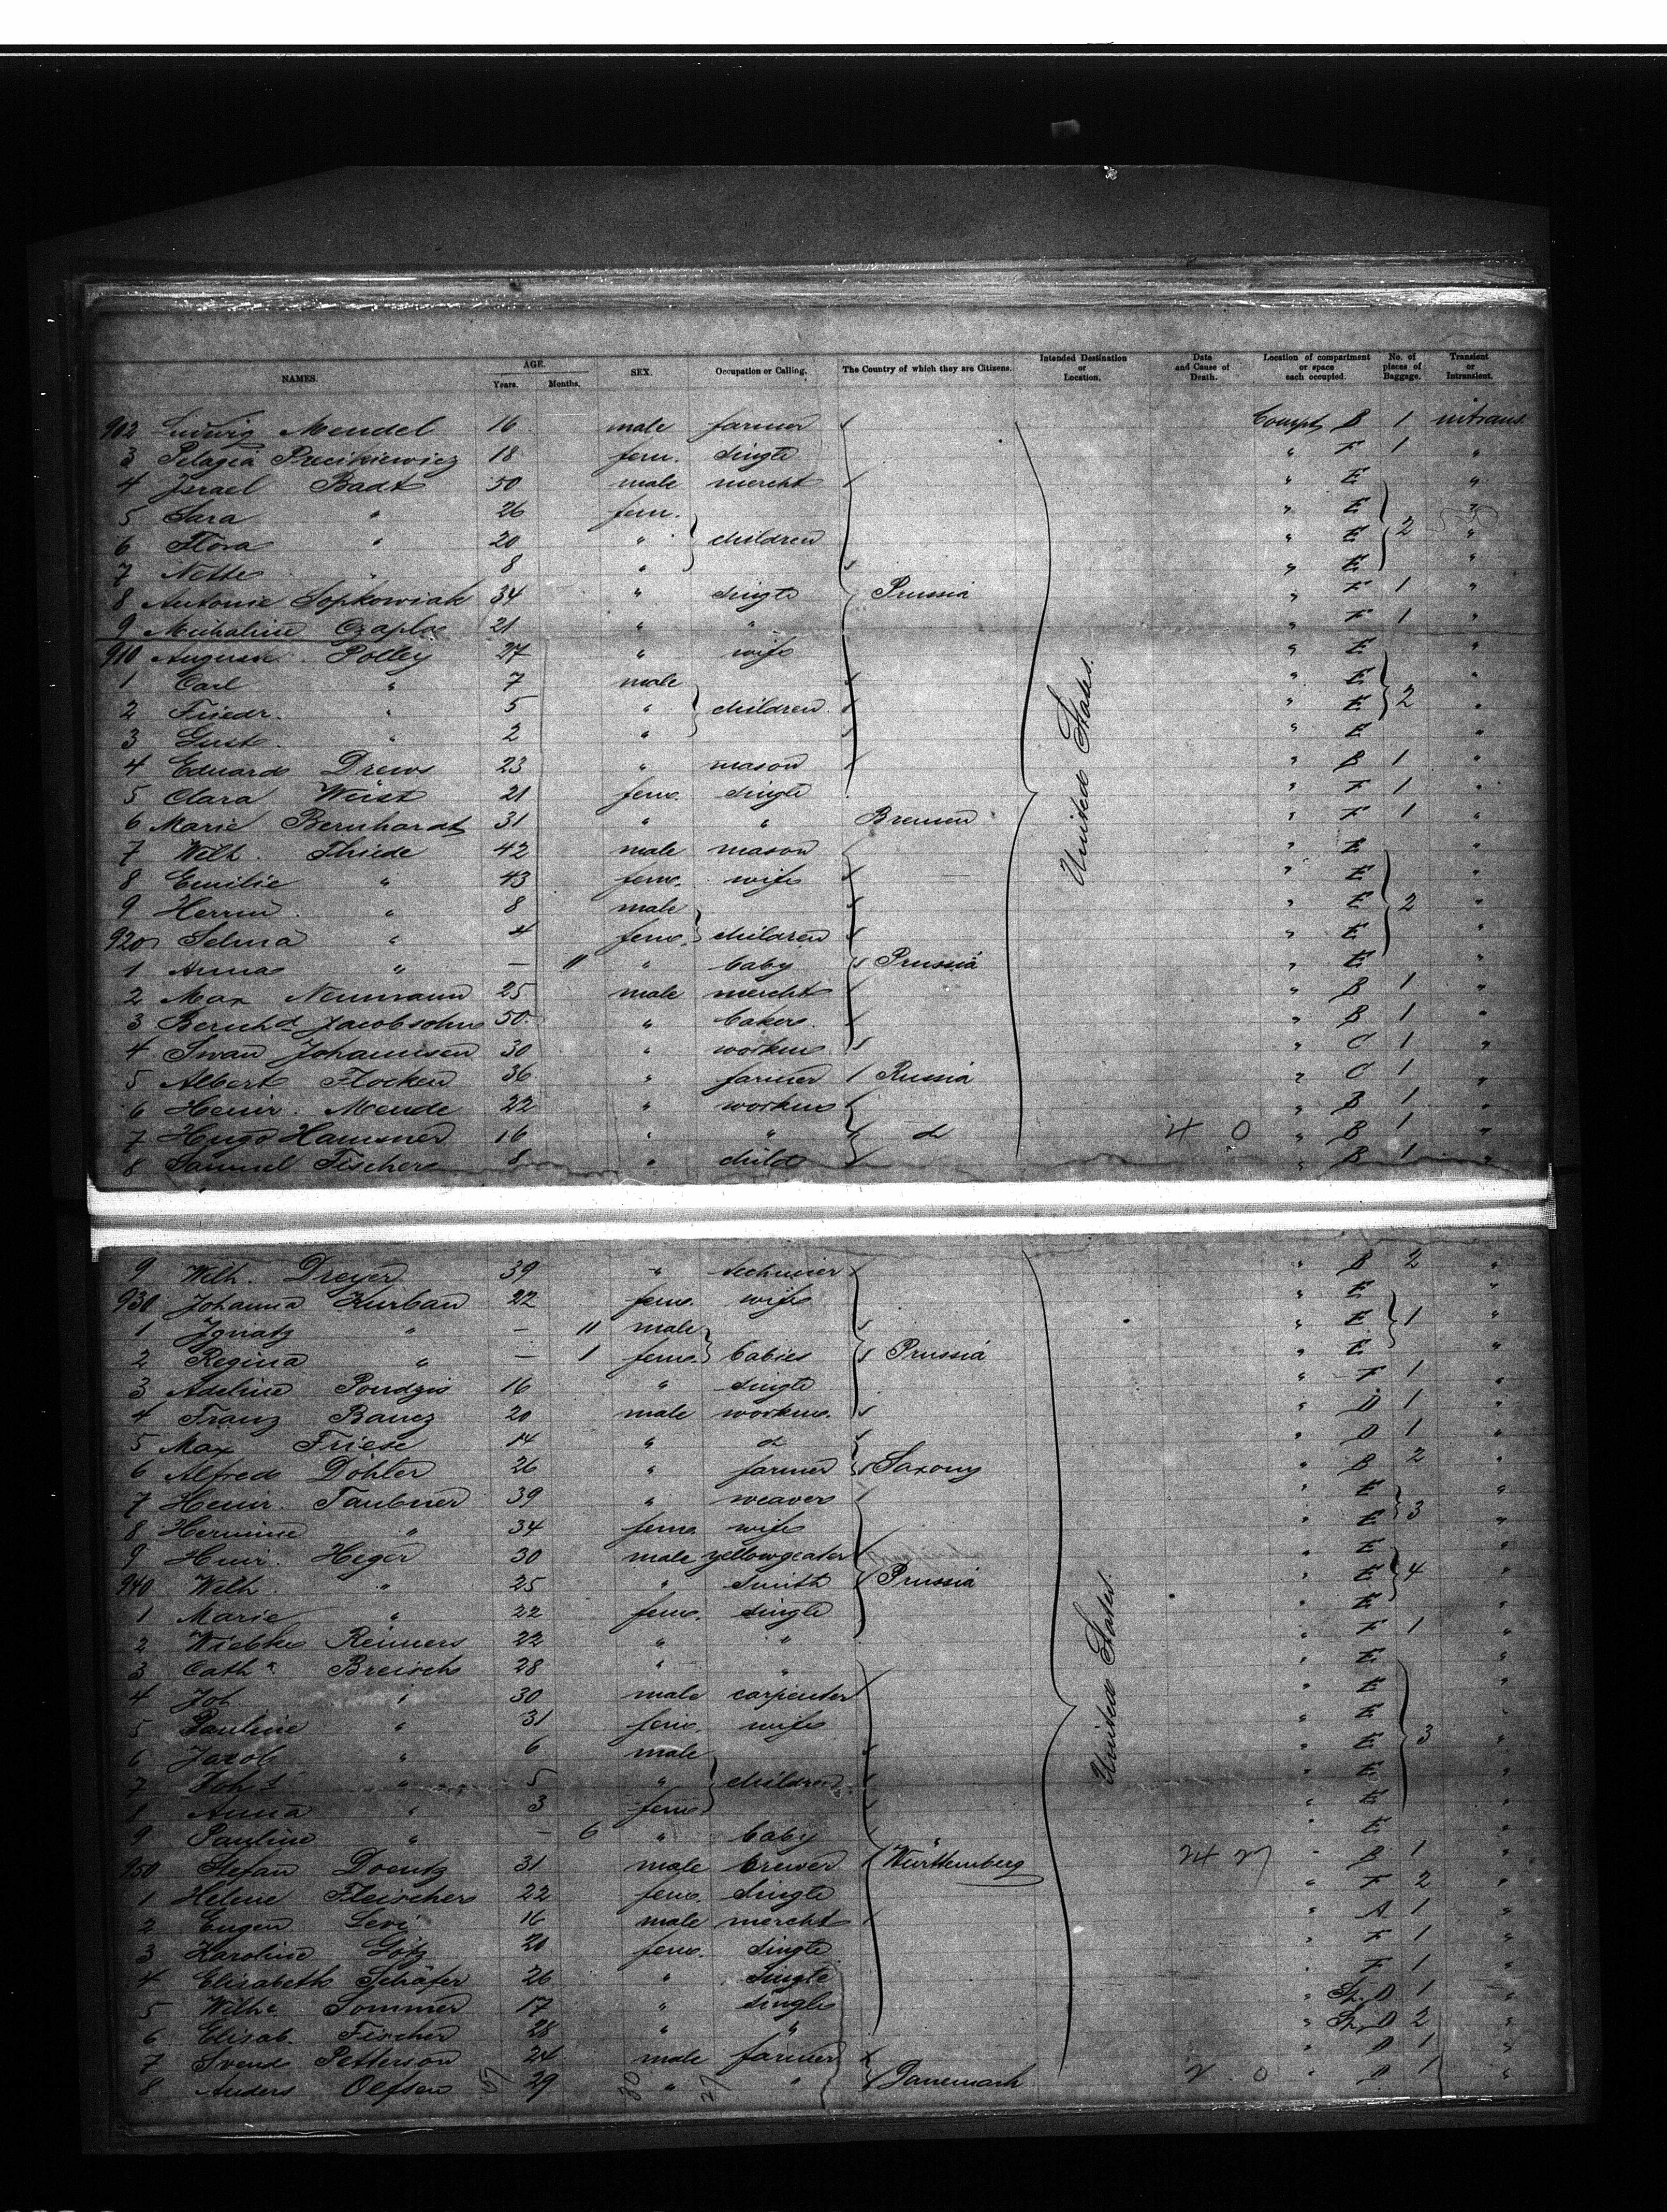 NAMES. AGE. Years. Months. SEX. Occupation or Calling. The Country of which they are Citizens. Intended Destination or Location. Date and Cause of Death. Location of compartment or space each occupied. No. of pieces of Baggage. Transient or Intransient.
902 Ludwig Mendel 16 male farmer Compt B 1 intrans.
3 Pelagia 18 fem. single " F 1 "
4 Israel Badt 50 male mercht " E "
5 Sara " 26 fem. " E "
6 Flora " 20 " children " E 2 "
7 Nette " 8 " " E "
8 Antonie Sopkowiak 34 " single Prussia " F 1 "
9 Michaline Czapla 21 " " " F 1 "
910 August. Polley 27 " wife " E "
1 Carl " 7 male " E "
2 Friedr. " 5 " children " E 2 "
3 Gust. " 2 " " E "
4 Eduard Drews 23 " mason " B 1 "
5 Clara Wüst 21 fem. single " F 1 "
6 Marie Bernhardt 31 " " Bremen " F 1 "
7 Wilh. Thiede 42 male mason " E "
8 Emilie " 43 fem. wife " E "
9 Herm. " 8 male " E 2 "
920 Selma " 4 fem. children " E "
1 Anna " — 11 " baby Prussia " E "
2 Max Neumann 25 male mercht " B 1 "
3 Bernhd. Jacobsohn 50 " baker " B 1 "
4 Swan Johannsen 30 " workm. " C 1 "
5 Albert Flocken 36 " farmer Russia " C 1 "
6 Heinr. Mende 22 " workm. " B 1 "
7 Hugo 16 " " do 4 0 " B 1 "
8 Samuel Fischer 8 " child " B 1 "
United States.
9 Wilh. Dreyer 39 " " B 2 "
930 Johanna Kurban 22 fem. wife " E "
1 Ignatz " — 11 male " E 1 "
2 Regina " — 1 fem. babies Prussia " E "
3 Adeline 16 " single " F 1 "
4 Franz 20 male workm. " D 1 "
5 Max Friese 14 " do " D 1 "
6 Alfred Döhler 26 " farmer Saxony " B 2 "
7 Heinr. Taubner 39 " weaver " E "
8 Hermine " 34 fem. wife " E 3 "
9 Heinr. Heger 30 male yellowgeater " E "
940 Wilh. " 25 " smith Prussia " E 4 "
1 Marie " 22 fem. single " E "
2 Wiebke Reimers 22 " " " F 1 "
3 Cath. Breisch 28 " " " E "
4 Joh. " 30 male carpenter " E "
5 Pauline " 31 fem. wife " E "
6 Jacob " 6 male " E 3 "
7 Joh. " 5 " children " E "
8 Anna " 3 fem. " E "
9 Pauline " — 6 " baby " E "
950 Stefan 31 male brewer Württemberg " B 1 "
1 Helene Fleischer 22 fem. single " F 2 "
2 Eugen Levi 16 male mercht " A 1 "
3 Karoline Götz 20 fem. single " F 1 "
4 Elisabeth Schäfer 26 " single " F 1 "
5 Wilh. Sommer 17 " single " Sp. D 1 "
6 Elisab. Fischer 28 " " " Sp. D 2 "
7 Svend Petterson 24 male farmer " D 1 "
8 Anders Olefsen 29 " " Danemark 2 0 " D 1 "
United States.